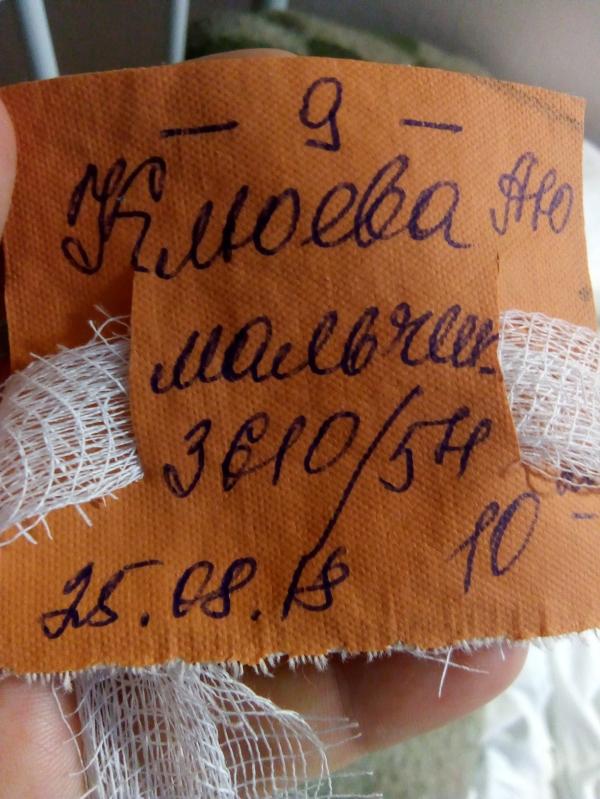 — 9 —
Клюева Аю
мальчик
3610/54
10
25.08.18